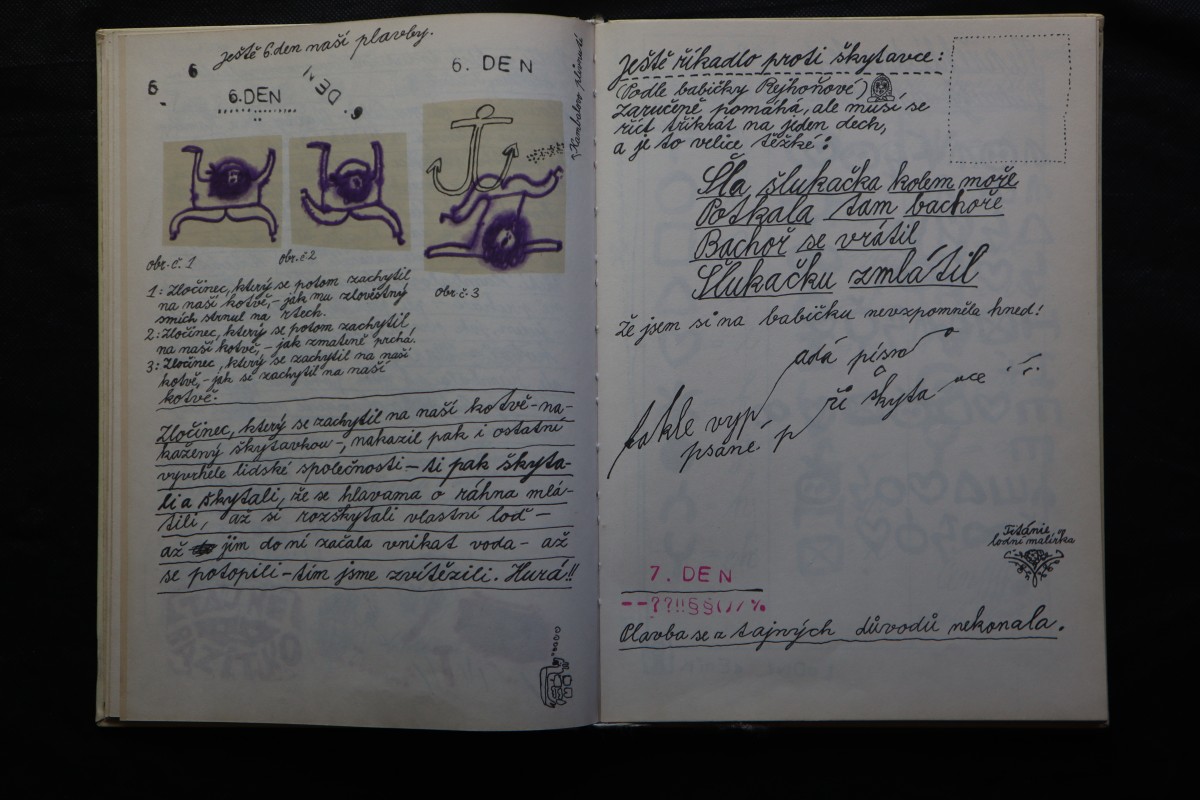 Ještě 6 den naší plavby.
6
6
6.DEN
6. DEN
6. DEN
obr. č. 1
obr. č 2
obr č. 3
1: Zločinec, který se potom zachytil
na naší kotvě, – jak mu zlověstný
smích strnul na rtech.
2: Zločinec, který se potom zachytil
na naší kotvě, – jak zmateně prchá.
3: Zločinec, který se zachytil na naší
kotvě, – jak se zachytil na naší
kotvě.
Zločinec, který se zachytil na naší kotvě – na-
kažený škytavkou –, nakazil pak i ostatní
vyvrhele lidské společnosti – ti pak škyta-
li a škytali, že se hlavama o ráhna mlá-
tili, až si rozškytali vlastní loď –
až jim do ní začala vnikat voda – až
se potopili – tím jsme zvítězili. Hurá!!
Ještě říkadlo proti škytavce:
(Podle babičky Rejhoňové)
Zaručeně pomáhá, ale musí se
říct třikrát na jeden dech,
a je to velice těžké:
Šla šlukačka kolem moře
Potkala tam bachoře
Bachoř se vrátil
Šlukačku zmlátil
Že jsem si na babičku nevzpomněla hned!
takle vyp adá písmo
psané p ři škyta vce
Titánie,
lodní malířka
7. DEN
--??!!§§()/%
Plavba se z tajných důvodů nekonala.